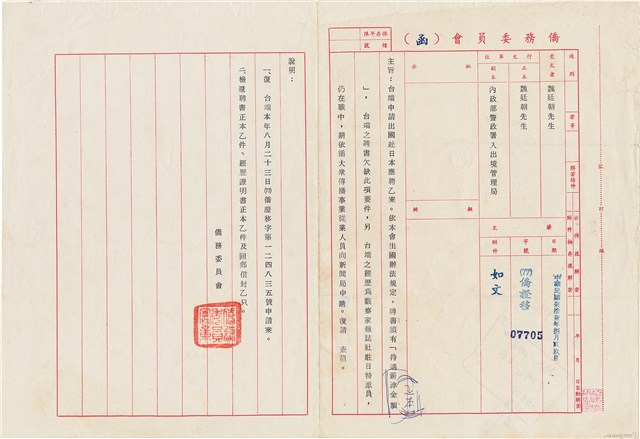 僑務委員會（函）
速別
密等
受文者
魏廷朝先生
行文單位
正本
魏廷朝先生
副本
內政部警政署入出境管理局
批示
擬辦
發文
日期
字號
(77)僑證移
07705
附件
如文
主旨：台端申請出國赴日本應聘乙案。依本會出國辦法規定，聘書須有「待遇薪津金額
」，台端之聘書欠缺此項要件，另　台端之經歷為觀察家雜誌社駐日特派員，
仍在職中，請依循大眾傳播事業從業人員向新聞局申請。復請　查照。
說明：
一、復　台端本年八月二十三日(77)僑證移字第一二四八三五號申請案。
二、檢還聘書正本乙件、經歷證明書正本乙件及回郵信封乙只。
僑務委員會